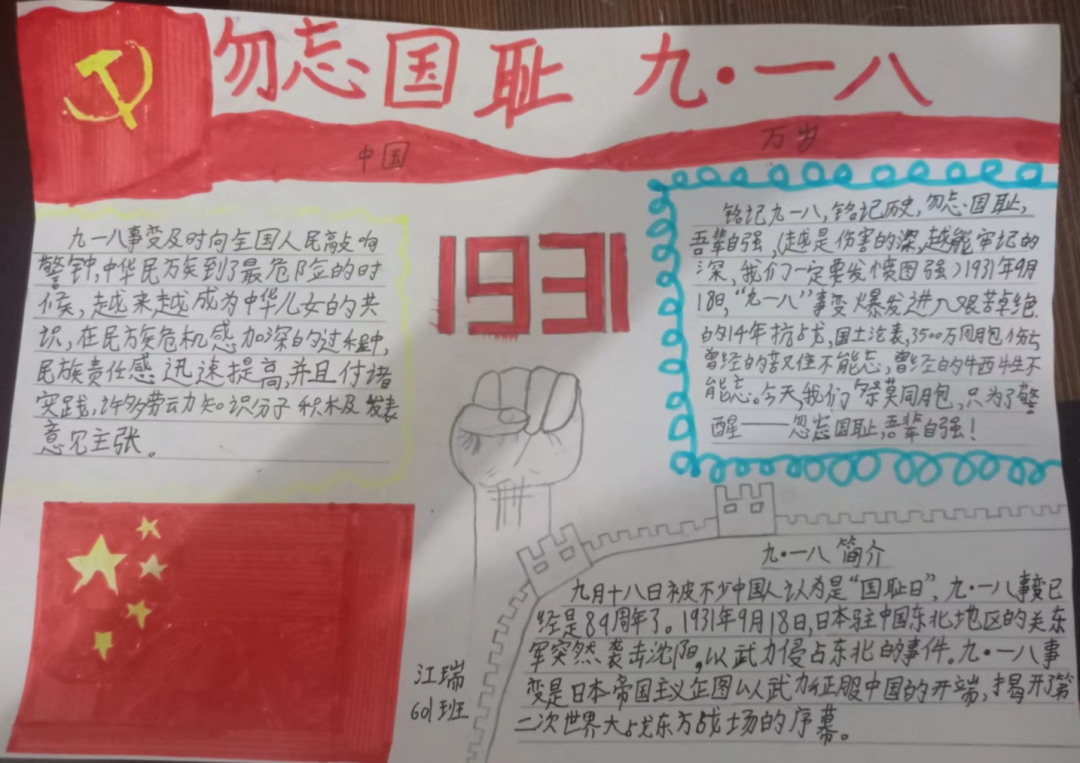 勿忘国耻 九·一八
中国 万岁
九一八事变及时向全国人民敲响
警钟,中华民族到了最危险的时
候,越来越成为中华儿女的共
识,在民族危机感加深的过程中,
民族责任感迅速提高,并且付诸
实践,许多劳动知识分子积极发表
意见主张。
1931
铭记九一八,铭记历史,勿忘国耻,
吾辈自强,(越是伤害的深,越能牢记的
深,我们一定要发愤图强)1931年9月
18日,“九一八”事变爆发进入艰苦卓绝
的14年抗战,国土沦丧,3500万同胞伤亡
曾经的苦难不能忘,曾经的牺牲不
能忘。今天,我们祭奠同胞,只为了警
醒——忽忘国耻,吾辈自强!
九·一八 简介
九月十八日被不少中国人认为是“国耻日”,九·一八事变已
经是89周年了。1931年9月18日,日本驻中国东北地区的关东
军突然袭击沈阳,以武力侵占东北的事件。九·一八事
变是日本帝国主义企图以武力征服中国的开端,揭开了第
二次世界大战东方战场的序幕。
江瑞
601班